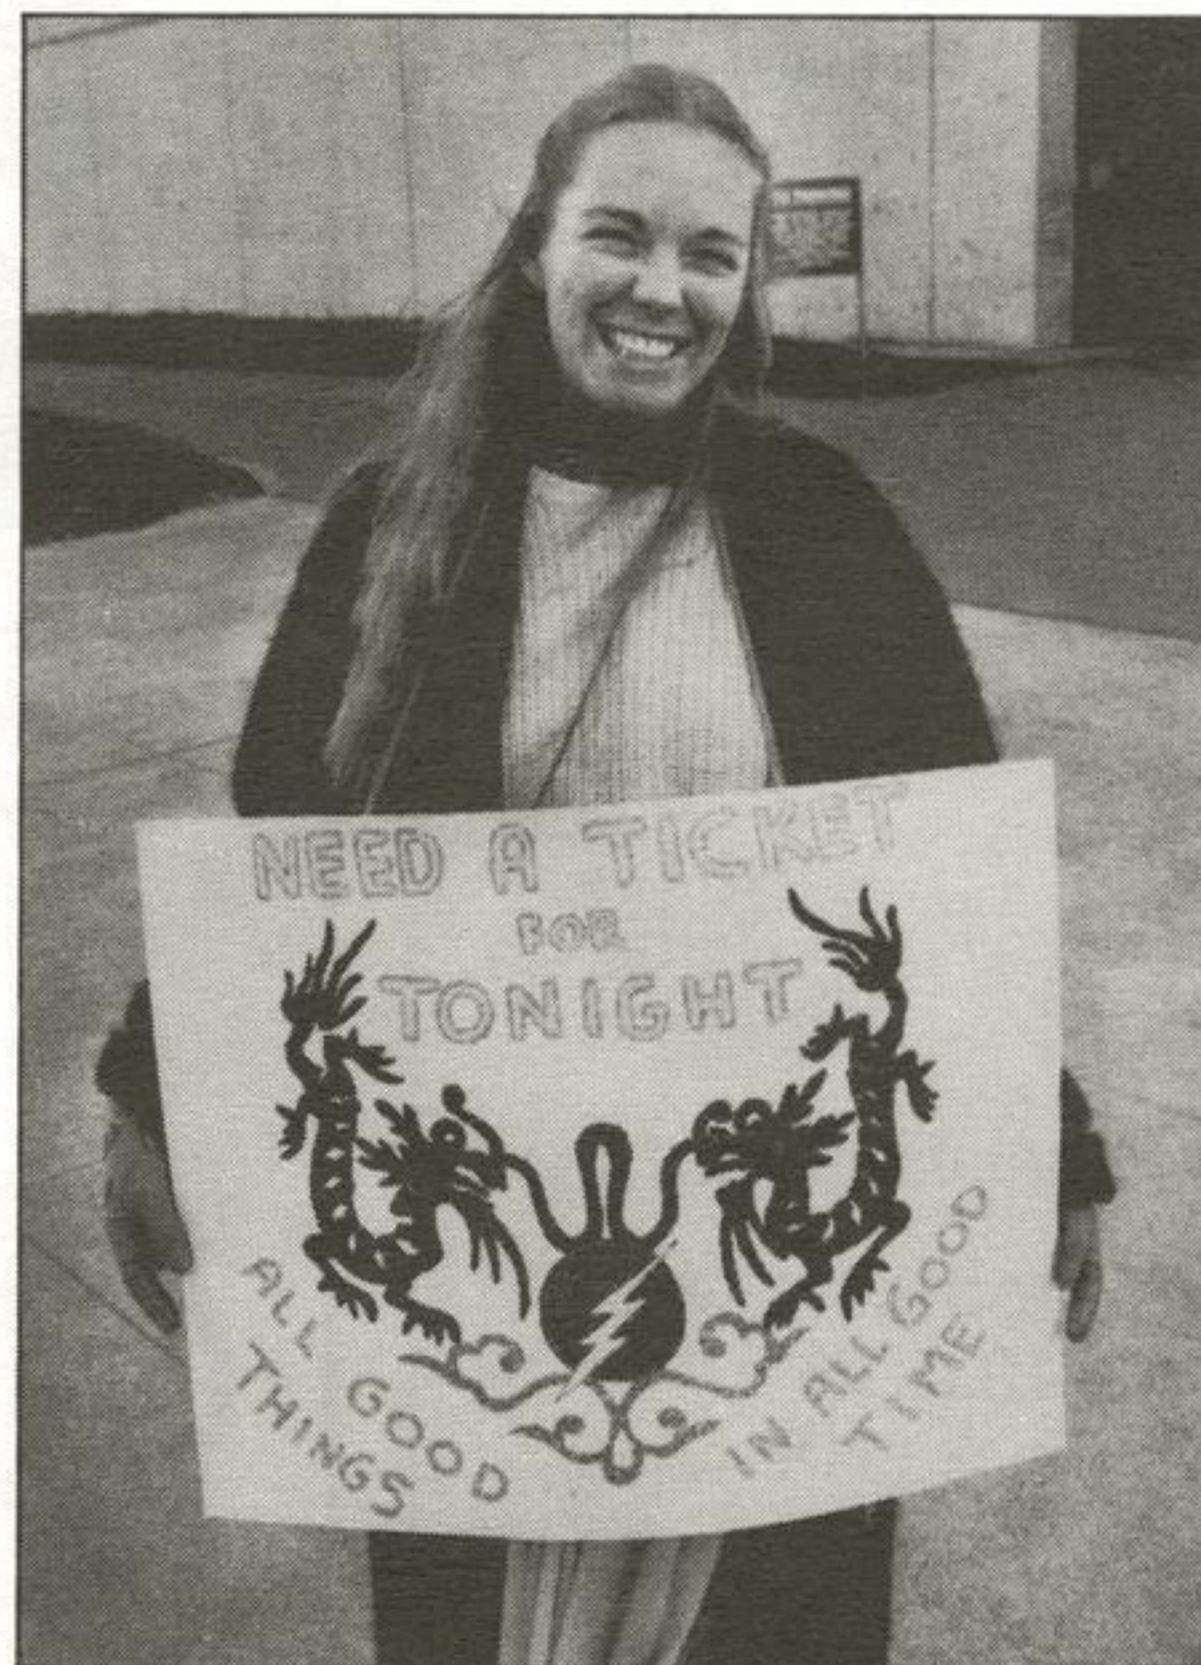 NEED A TICKET
FOR
TONIGHT
ALL GOOD
THINGS
IN ALL GOOD
TIME